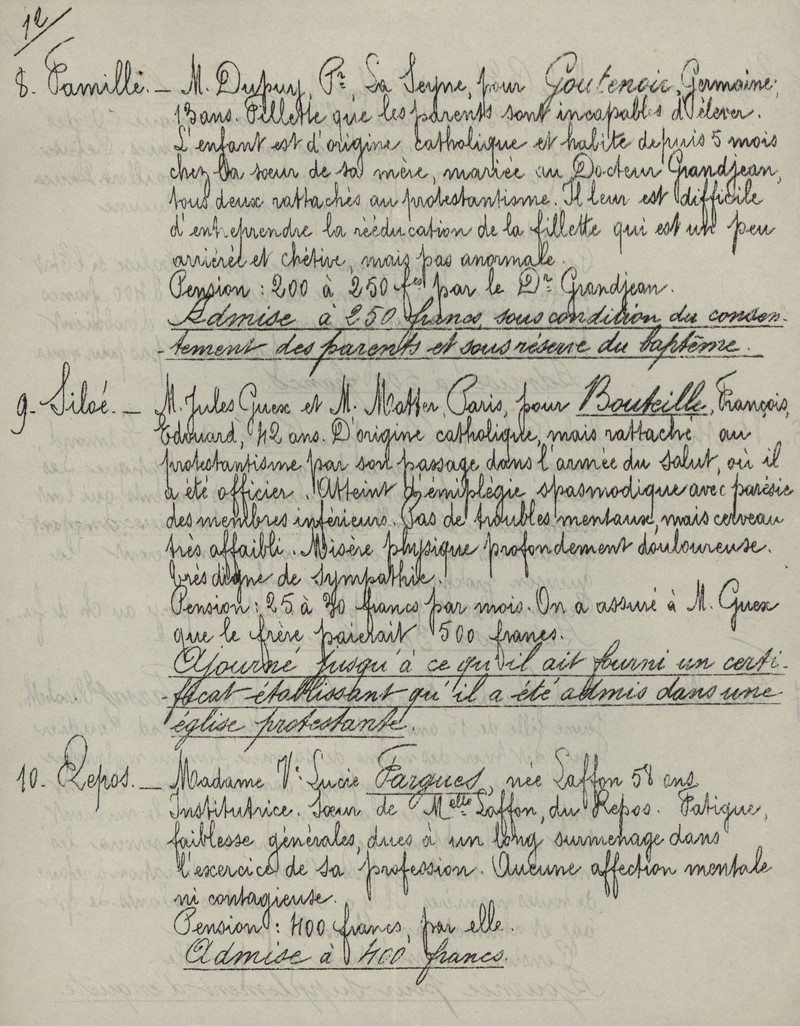 12
8- Famille. — M. Dupuy, Pr, La Seyne, pour Goutenoir, Germaine,
13 ans. Fillette que les parents sont incapables d'élever.
L'enfant est d'origine catholique et habite depuis 5 mois
chez la sœur de sa mère, mariée au Docteur Grandjean,
tous deux rattachés au protestantisme. Il leur est difficile
d'entreprendre la rééducation de la fillette qui est un peu
arriérée et chétive, mais pas anormale.
Pension : 200 à 250 fcs par le Dr Grandjean.
Admise à 250 francs, sous condition du consen-
-tement des parents et sous réserve du baptême.
9- Siloé. — M. Jules Guex et M. Matter, Paris, pour Bouteille, François,
Edouard, 42 ans. D'origine catholique, mais rattaché au
protestantisme par son passage dans l'armée du salut, où il
a été officier. Atteint d'émiplégie spasmodique avec parésie
des membres inférieurs. Pas de troubles mentaux, mais cerveau
très affaibli. Misère physique profondement douloureuse.
Très digne de sympathie.
Pension : 25 à 30 francs par mois. On a assuré à M. Guex
que le frère paierait 500 francs.
Ajourné jusqu'à ce qu'il ait fourni un certi-
-ficat établissant qu'il a été admis dans une
église protestante.
10- Repos. — Madame Ve Lucie Fargues, née Laffon 58 ans
Institutrice. Sœur de Melle Laffon, du Repos. Fatigue,
faiblesse générales, dues à un long surmenage dans
l'exercice de sa profession. Aucune affection mentale
ni contagieuse.
Pension : 400 francs, par elle.
Admise à 400 francs.